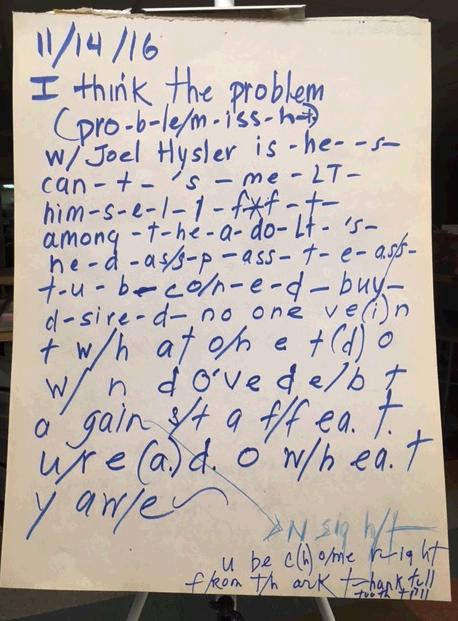 11/14/16
I think the problem
(pro-b-le/m-iss-h-t)
w/ Joel Hysler is -he--s-
can-t-'s-me-LT-
him-s-e-l-1-f*f-t-
among -t-he-a-do-Lt-'s-
he-d-as/s-p-ass-t-e-ass-
t-u-b-co/n-e-d-buy-
d-sire-d- no one ve(i)n
t w/h at o/n e t(d) o
w/ n d o've d e/b t
a gain s/t a f/f ea. t.
u/r e (a.) d. o w/h ea. t
y aw/e
N sig h/t
u be c(h) o/me n-ight
f/rom th ark t-hank full
tooth till